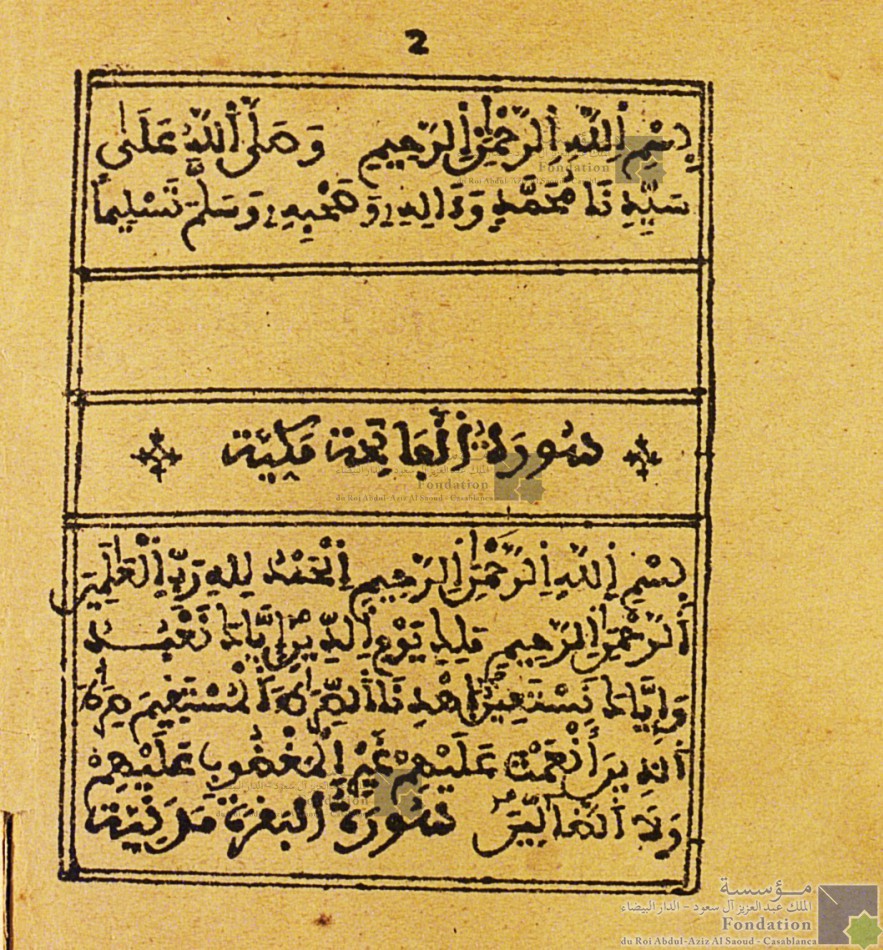 2
بِسْمِ اِللَّهِ اِلرَّحْمَٰنِ اِلرَّحِيمِ وَصَلَّى أَللَّهُ عَلَىٰ
سَيِّدِنَا مُحَمَّدٍ وَءَالِهِۦ وَصَحْبِهِۦ وَسَلَّمَ تَسْلِيماً
سُورَةُ اُلْفَاتِحَةِ مَكِّيَّة
بِسْمِ اِللَّهِ اِلرَّحْمَٰنِ اِلرَّحِيمِ اِلْحَمْدُ لِلهِ رَبِّ اِلْعَٰلَمِينَ
أَلرَّحْمَٰنِ اِلرَّحِيمِ مَلِكِ يَوْمِ اِلدِّينِ إِيَّاكَ نَعْبُدُ
وَإِيَّاكَ نَسْتَعِينُ اُهْدِنَا اَلصِّرَٰطَ اَلْمُسْتَقِيمَ صِرَٰطَ
اَلذِينَ أَنْعَمْتَ عَلَيْهِمْ غَيْرِ اِلْمَغْضُوبِ عَلَيْهِمْ
وَلَا اَلضَّآلِّينَ سُورَةُ اُلْبَقَرَةِ مَدَنِيَّة
مؤسسة
الملك عبد العزيز آل سعود - الدار البيضاء
Fondation
du Roi Abdul-Aziz Al Saoud - Casablanca